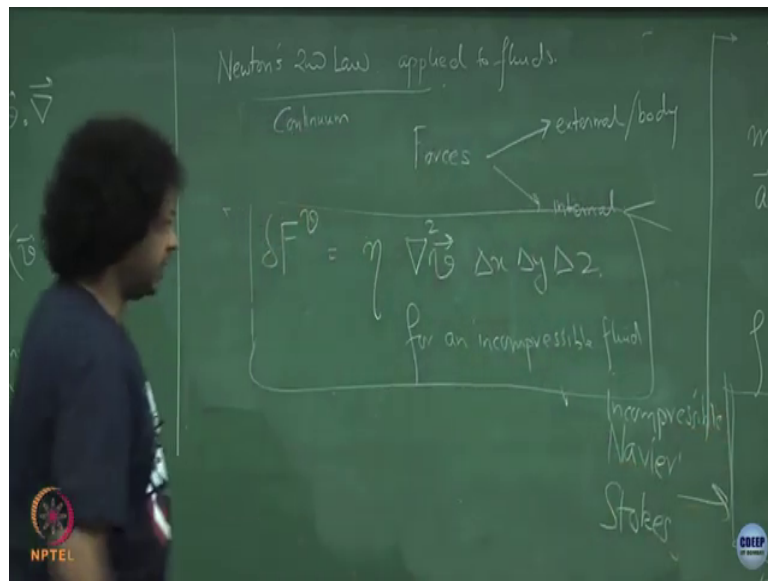 Newton's 2nd Law applied to fluids.
Continuum
Forces
external/body
internal
δF^v = η ∇²v⃗ Δx Δy Δz.
for an incompressible fluid
Incompressible
Navier
Stokes
.∇⃗
(v⃗
m
a⃗
ρ
NPTEL
CDEEP
IIT BOMBAY